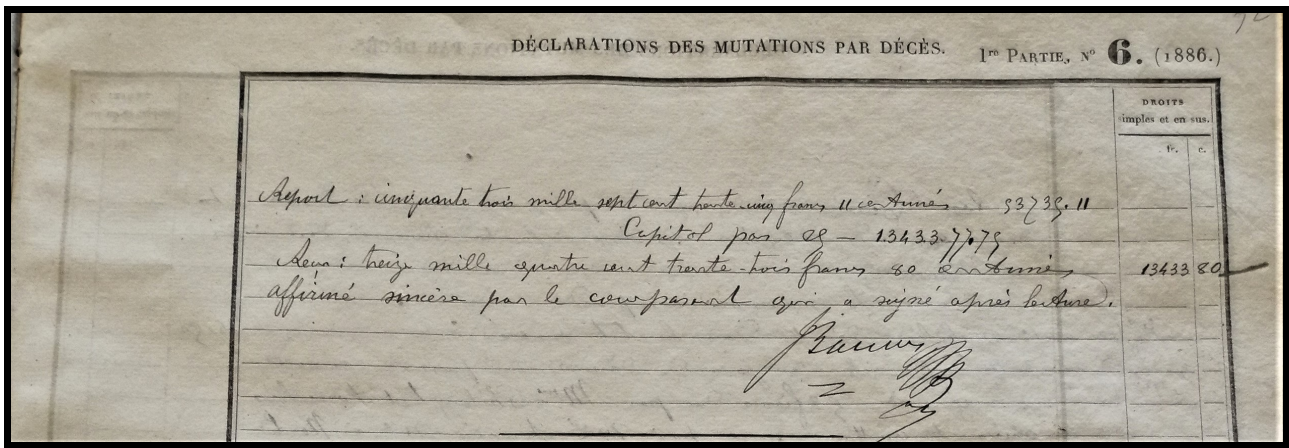 DÉCLARATIONS DES MUTATIONS PAR DÉCÈS. 1re PARTIE, No 6. (1886.)
DROITS
imples et en sus.
fr. c.
Report : cinquante trois mille sept cent trente-cinq francs 11 centimes 53735.11
Capital par 25 — 13433.77.75
Reçu : treize mille quatre cent trente-trois francs 80 centimes 13433 80
affirmé sincère par le comparant qui a signé après lecture.